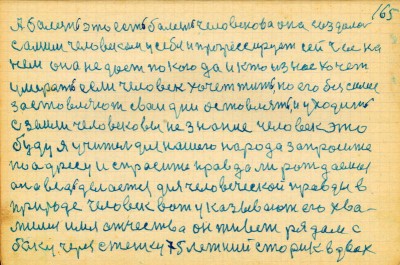 165
А болезнь это есть болезнь человекова она создалась
самим человеком и себя и прогрессирует сейчас на
нем она не дает покоя да и кто из нас хочет
умирать если человек хочет жить но его без силие
заставляют свои дни оставлять и уходить
с земли человековы не знание человек это
буду я учитель для нашего народа запросите
по адресу и спросите правда ли рождаемая
она ведь делается для человеческой правды в
природе человек вот указывают его фа-
милия имя отчества он живет рядом с
боку через стенку 75 летний старик в двах